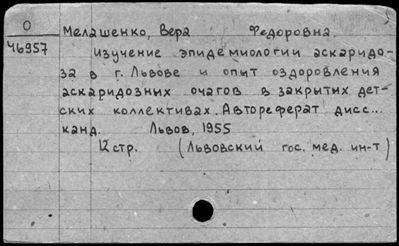 О
46957
Мелашенко, Вера Федоровна
Изучение эпидемиологии аскаридо-
за в г. Львове и опыт оздоровления
аскаридозных очагов в закрытых дет-
ских коллективах. Автореферат дисс...
канд. Львов, 1955
12 стр. (Львовский гос. мед. ин-т)